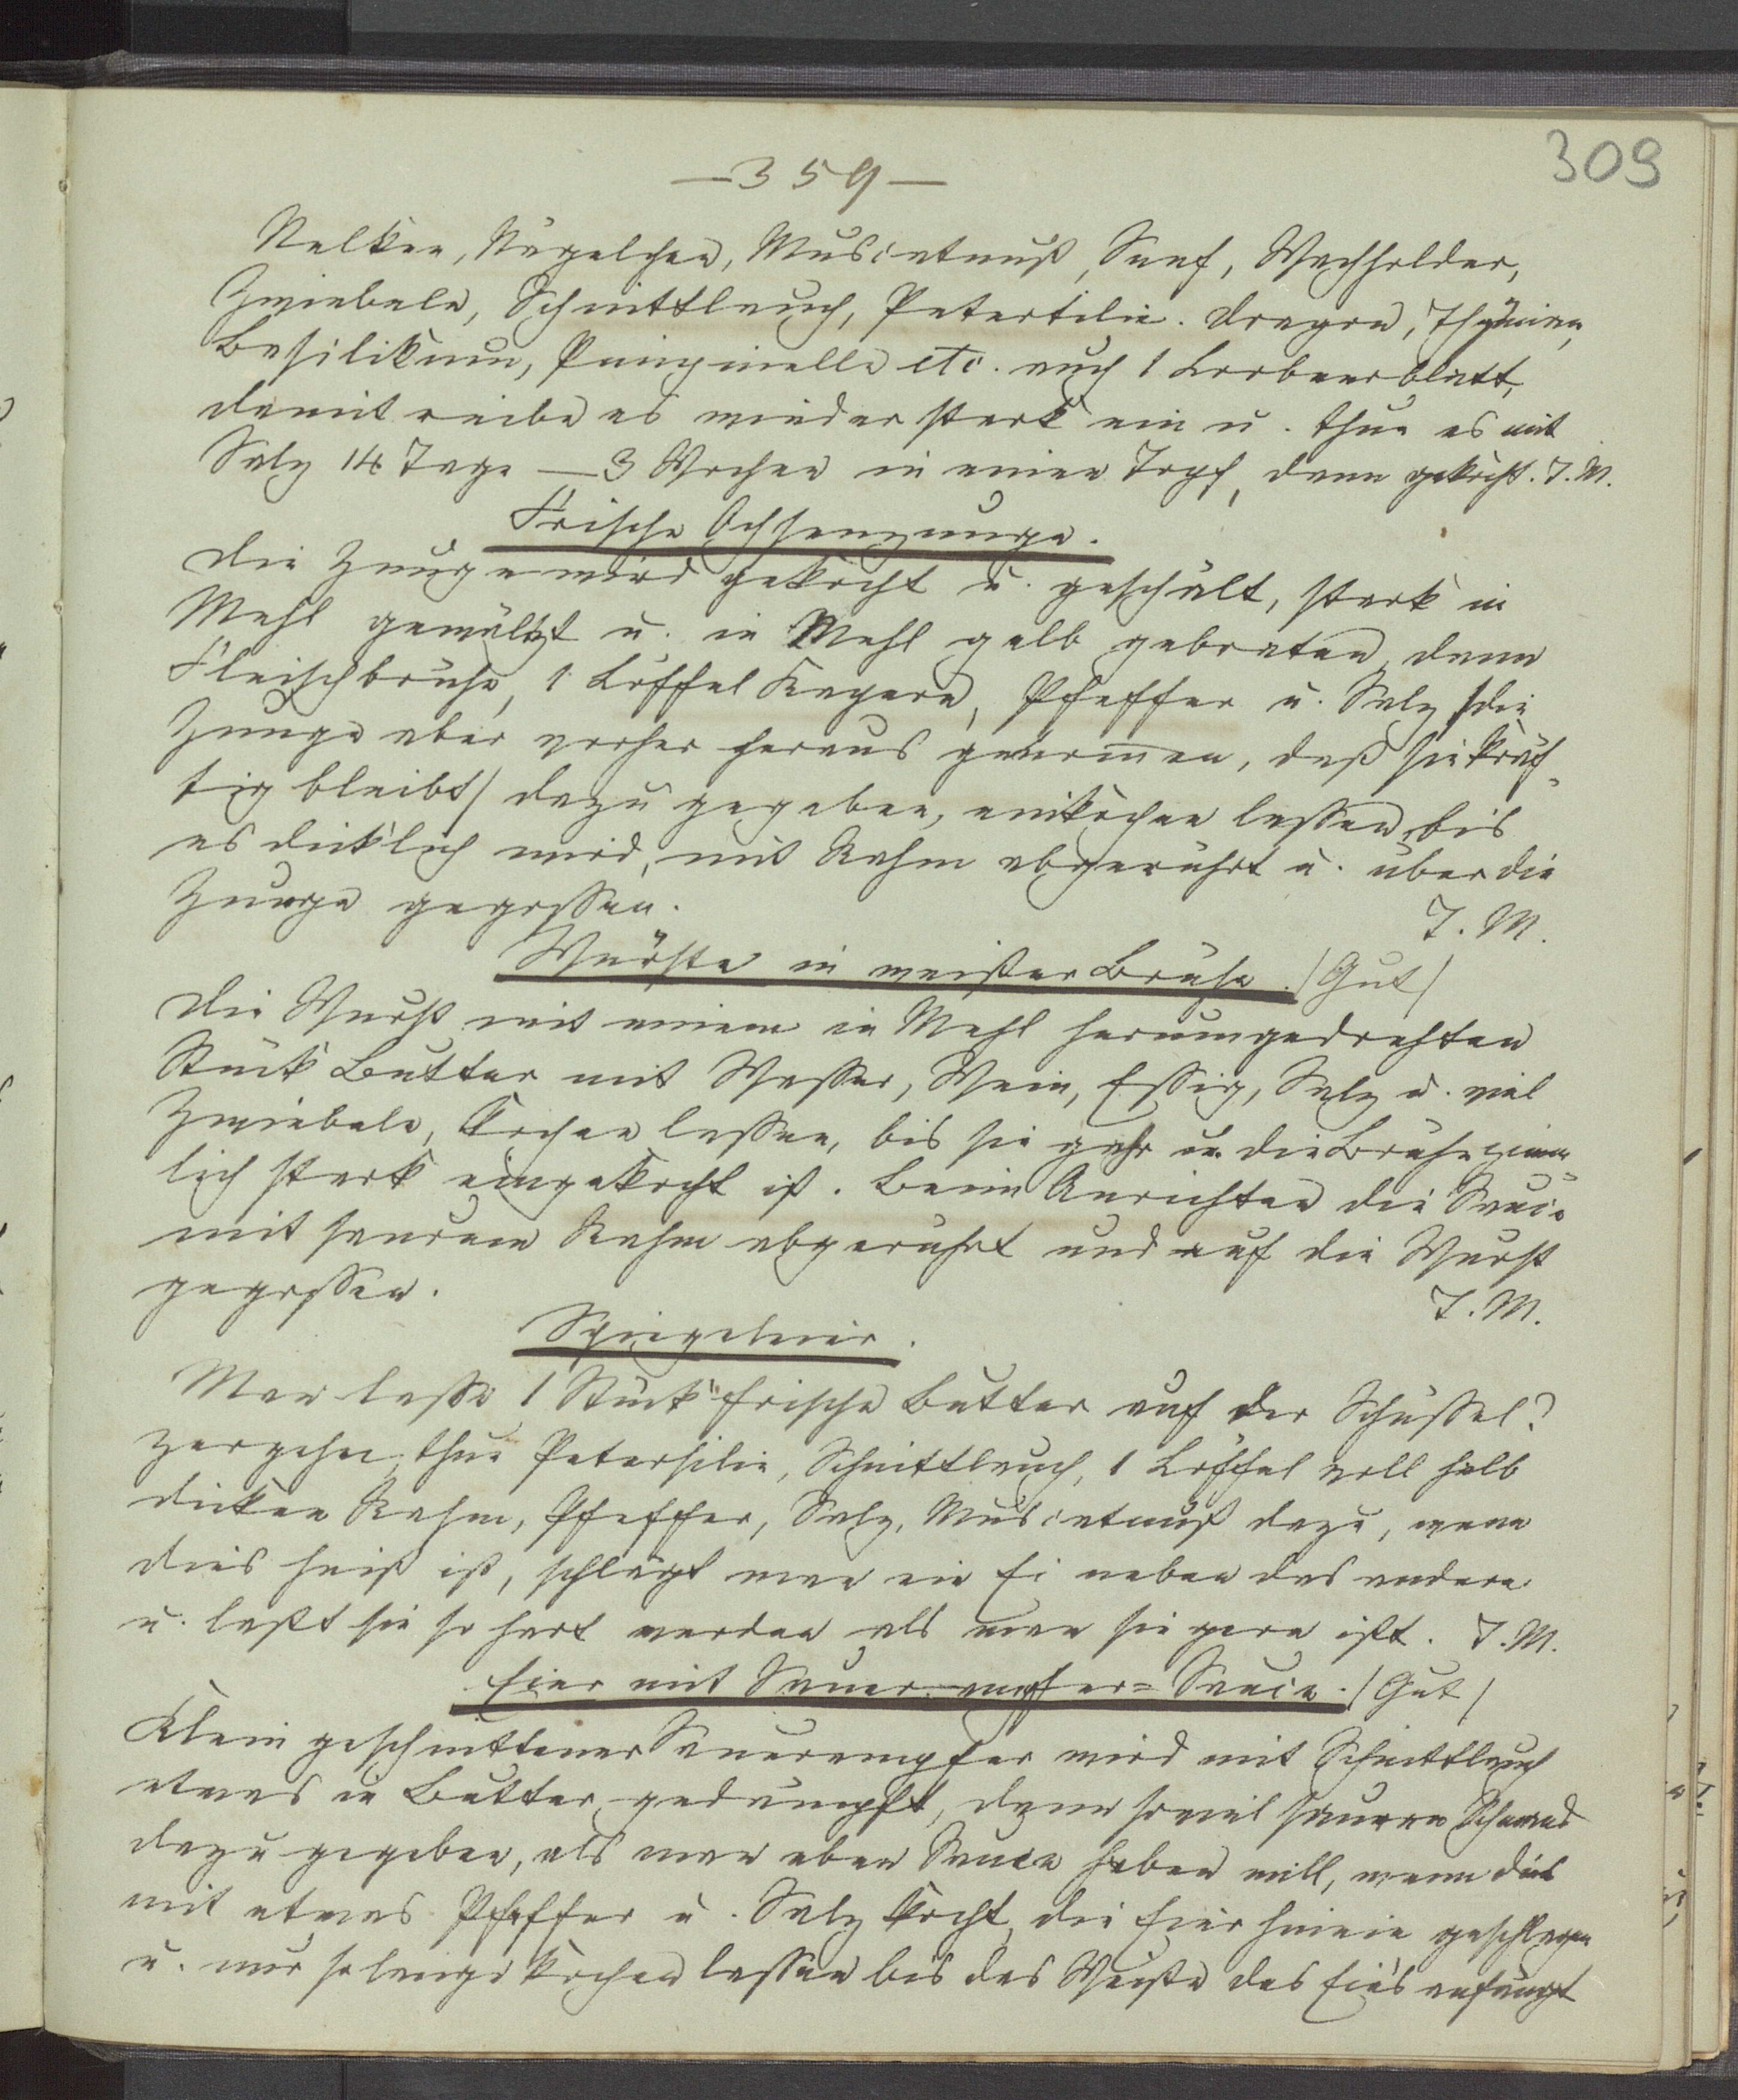 309
— 359 —
Nelken, Nägelchen, Muscatnuß, Senf, Wachholder,
Zwiebeln, Schnittlauch, Petersilie. Dragon, Thymian,
Basilikum, Pimpinelle etc. auch 1 Lorbeerblatt,
damit reibe es wieder stark ein u. thue es mit
Salz 14 Tage — 3 Wochen in einen Topf, dann gekocht. T. M.
Frische Ochsenzunge.
Die Zunge wird gekocht u. geschält, stark in
Mehl gewälzt u. in Mehl gelb gebraten, dann
Fleischbrühe, 1 Löffel Kapern, Pfeffer u. Salz /die
Zunge aber vorher heraus genommen, daß sie kräf=
tig bleibt/ dazu gegeben, einkochen lassen, bis
es dicklich wird, mit Rahm abgerührt u. über die
Zunge gegossen. T. M.
Würste in weißer Brühe. /Gut/
Die Wurst mit einem in Mehl herumgedrehten
Stück Butter mit Wasser, Wein, Essig, Salz u. viel
Zwiebeln, kochen lassen, bis sie gahr u. die Brühe ziem=
lich stark eingekocht ist. Beim Anrichten die Sauce
mit saurem Rahm abgerührt und auf die Wurst
gegossen. T. M.
Spiegeleier.
Man lasse 1 Stück frische Butter auf der Schüssel?
zergehen, thue Petersilie, Schnittlauch, 1 Löffel voll halb
dicken Rahm, Pfeffer, Salz, Muscatnuß dazu, wenn
dies heiß ist, schlägt man ein Ei neben das andere
u. laßt sie so hart werden als man sie gern ißt. T. M.
Eier mit Sauerampfer=Sauce. /Gut/
Klein geschnittener Sauerampfer wird mit Schnittlauch
etwas in Butter gedämpft, dann soviel sauren Schmand
dazu gegeben, als man eben Sauce haben will, wenn dies
mit etwas Pfeffer u. Salz kocht, die Eier hinein geschlagen
u. nur so lange kochen lassen bis das Weiße des Eies anfängt